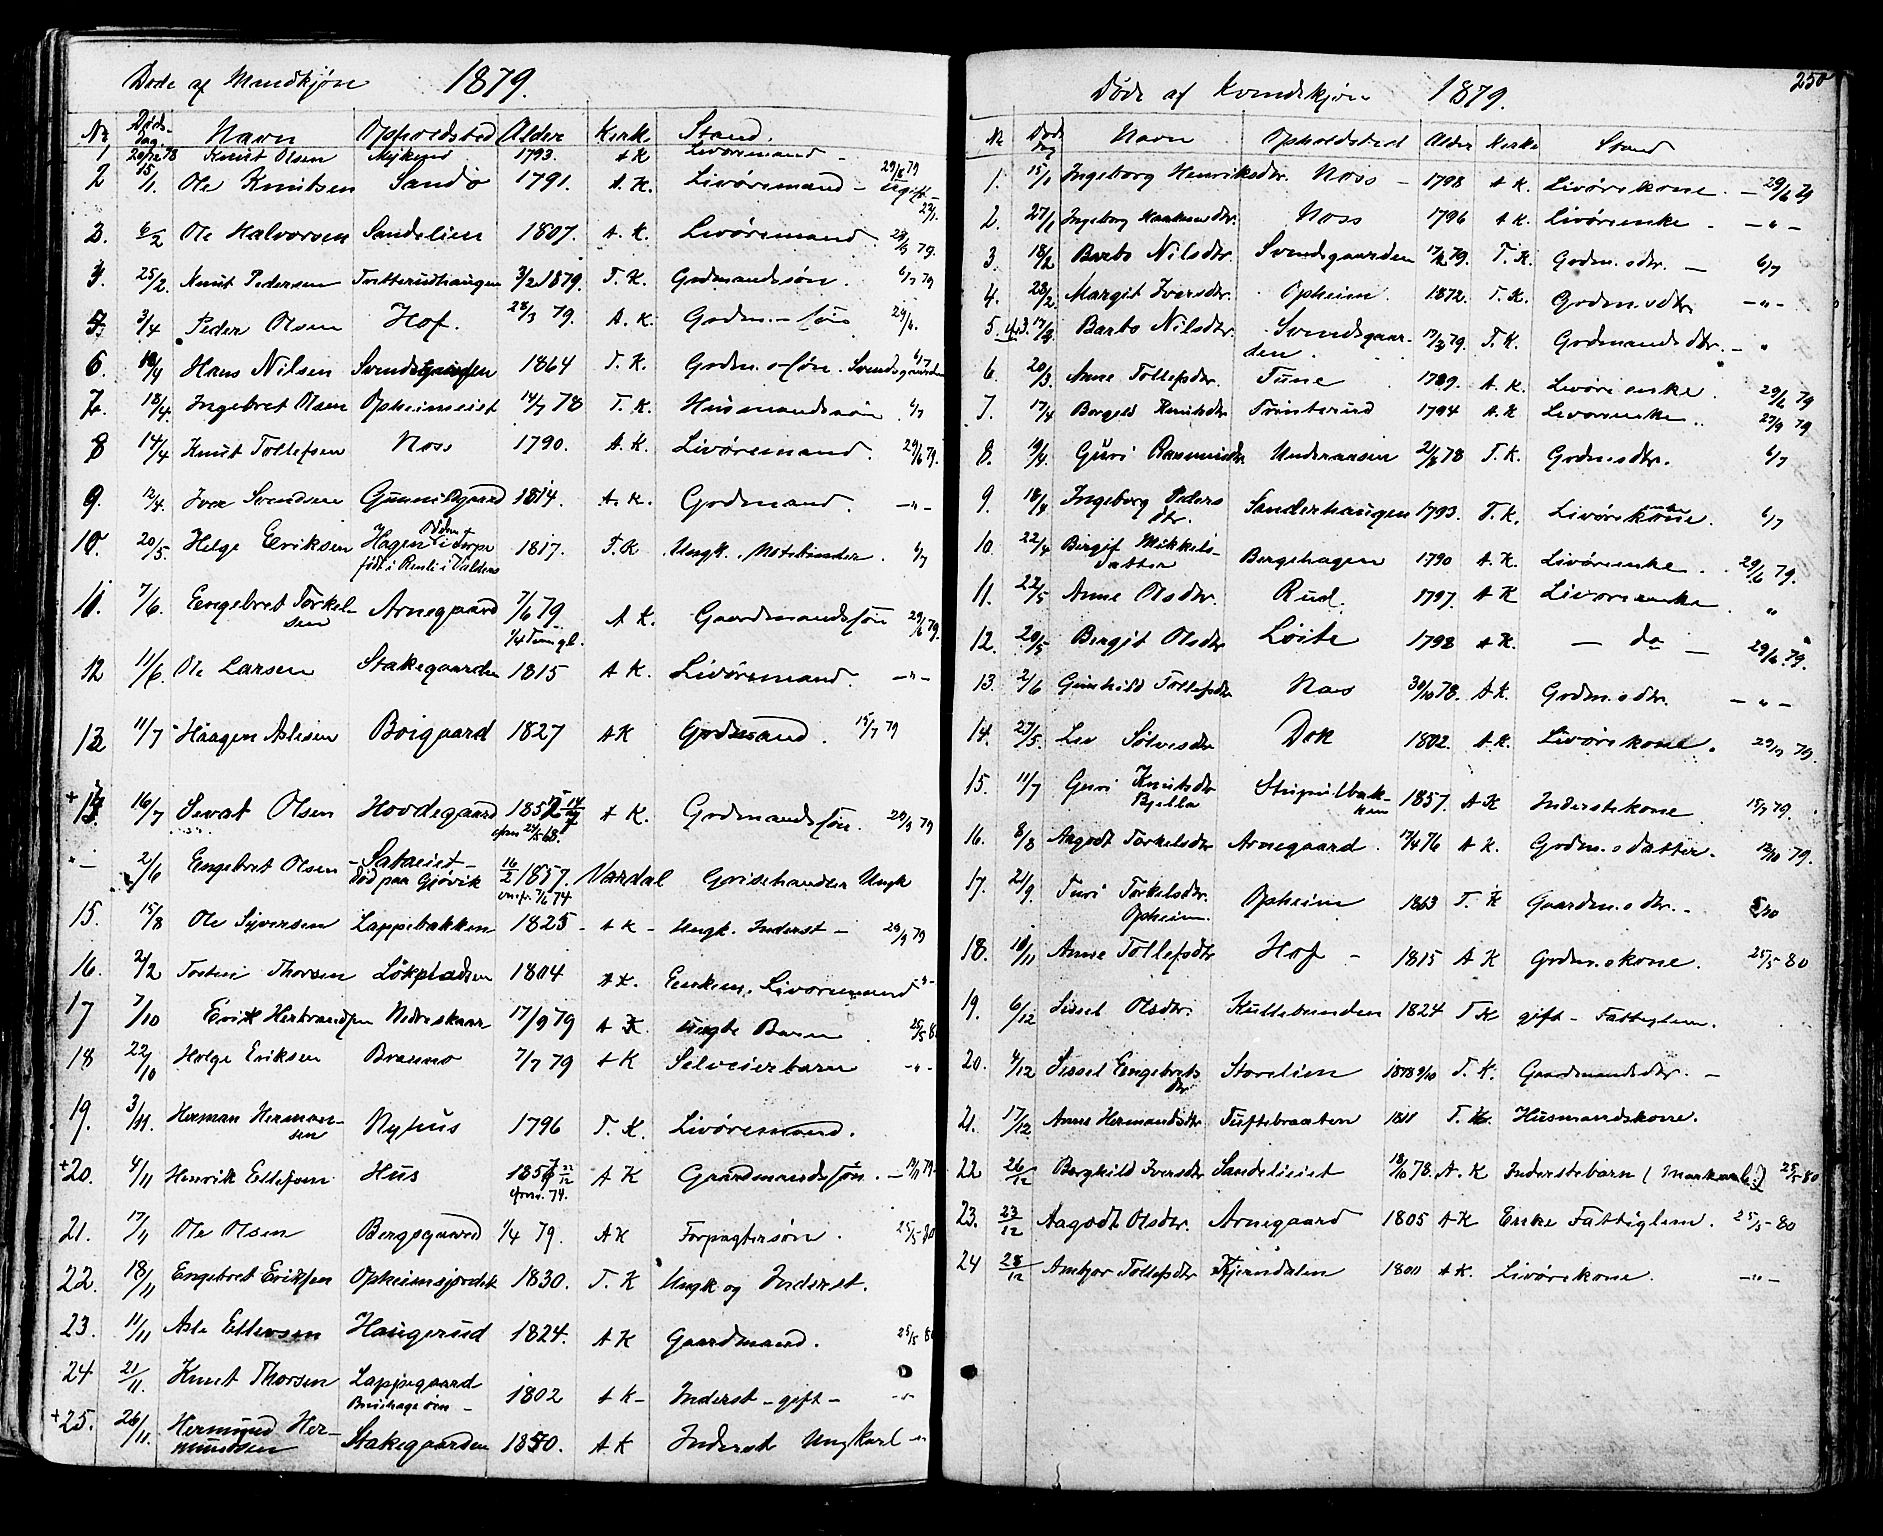 Døde af Mandkjøn 1879.
No Døds-dag. Navn Opholdsted Alder Kirke Stand.
1 20/12 78 Knut Olsen Mykend 1793. A K Livøremand -
2 15/1. Ole Knutsen Sandø 1791. A. K. Livøremand - 29/6 79 ugift
3. 6/2 Ole Halvorsen Sandelien 1807. A. K. Livøremand. 29/6 79.
4. 25/2. Knut Pedersen Trætterudhaugen 3/2 1879. T. K. Grdmandssøn. 6/7 79
5 3/4 Peder Olsen Hof. 28/3 79. A. K. Grdm. - søn 29/6.
6. 10/4 Hans Nilsen Svendsgaarden 1864 T. K. Grdm. s søn. Svendsgaarden 6/7
7. 18/4. Ingebret Olsen Opheimseiet 14/7 78 T. K. Husmandssøn 6/7
8 14/4 Knut Tollefsen Noss 1790. A. K. Livøremand. 29/6 79.
9. 12/4. Iver Svendsen Gunnildgaard 1814. A. K. Grdmand. -"-
10. 20/5. Helge Eriksen Hagen i Torpe 1817. T. K Ungk. Notebinder. 6/7
født i Reinli i Valders
11. 7/6. Engebret Torkel-sen Arnegaard 7/6 79 A K. Gaardmandssøn 29/6 79.
1/4 Time gl.
12 11/6. Ole Larsen Stakegaarden 1815 A K. Livøremand. -"-
13 11/7 Haagen Aslesen Boigaard 1827 A K Grdmand. 15/7 79
+ 14. 16/7 Sevat Olsen Hovdegaard 1852 A K. Grdmandssøn. 29/9 79
"- 2/6 Engebret Olsen - Sataeiet - død paa Gjøvik 16/2 1857. Vardal Grisehandler Ungk
15. 15/8 Ole Syversen Lappebakken 1825 - A K - Ungk. Inderst - 29/9 79
16. 2/2 Torstein Thorsen Løkpladsen 1804 A K. Enkem. Livøremand "-
17 7/10 Erik Herbrandsen Nedreskaar 17/9 79 A K. uægte Barn 25/5 80
18 22/10 Helge Eriksen Brenno 7/7 79 A K Selveierbarn -"-
19. 3/11. Herman Herman-sen Nyhus 1796 T. K. Livøremand.
+20. 4/11 Henrik Ellefsen Hus 1856 22/12 A K Grdmandssøn. - 79
21. 17/11 Ole Olsen Bergsgaard 1/4 79. A K Forpagtersøn. 25/5 80
22. 18/11 Engebret Eriksen Opheimsjordet 1830. T. K Ungk og Inderst.
23. 11/11 Asle Ellevsen Haugerud 1824. A K Gaardmand. 25/5 80
24 21/11. Knut Thorsen Lappegaard 1802 A K - Inderst - gift - -"-
+25. 26/11. Hermund Her-mundsen Stakegaarden 1850. A. K Inderst Ungkarl -"-
Døde af Kvindekjøn 1879. 250
No Døds dag Navn Opholdsted Alder Kirke Stand
1. 15/1 Ingeborg Henriksdtr. Noss - 1798 A K. Livørekone. - 29/6 79
2. 27/1 Ingeborg Haakensdtr. Noss 1796 A K. Livørenke. -"-
3. 18/2 Barbo Nilsdtr. Svendsgaarden 17/2 79. T. K. Grdm.sdtr. - 6/7
4. 28/2 Margit Iversdtr. Opheim. 1872. T. K. Grdm.sdtr -"-
5. Barbo Nilsdtr. Svendsgaar-den. 17/2 79. T. K. Grdmandsdtr. - "
6. 20/3. Anne Tollefsdtr. Tune 1789. A. K. Livørenke. 29/6 79
7. 17/4 Borgild Knutsdtr Trinterud 1794 A. K Livørenke. 29/9 79
8. 19/4. Guri Rasmusdtr Underaasen 21/6 78 T. K. Grdmsdtr. 6/7
9. 18/4 Ingeborg Peders dtr. Sanderhaugen 1793. T. K. Livørekone. 6/7
10. 22/4 Birgit Mikkels-datter Bergehagen 1790 A. K. Livørenke. 29/6 79.
11. 22/5 Anne Olsdtr. Rud. 1797. A K Livørenke. "
12. 20/5 Bergit Olsdtr Loite 1798 A K. - do - 29/6 79.
13. 2/6 Gunhild Tollefsdtr Noss 30/10 78. A. K Grdm.sdtr. -"-
14. 27/5. Liv Sølvesdtr Dok 1802. A. K. Livørekone. 29/9 79.
15. 11/7 Guri Knutsdtr Bjella Stupulbak-ken 1857. A K Inderstekone. 15/7 79.
16. 8/8 Aagodt Torkelsdtr Arnegaard. 17/4 76 A K. Grdm.sdatter. 12/10 79.
17. 21/9. Turi Torkelsdtr. Opheim. Opheim 1863 T. K Gaardm.sdtr. - 5/10
18. 10/11 Anne Tollefsdtr Hof - 1815 A K Grdm.skone. 25/5 80
19. 6/12 Sissel Olsdtr. Kullebunden 1824 T K gift - Fattiglem.
20. 4/12 Sissel Engebrets dtr Storelien 1878 9/10 T. K. Gaardmandsdtr. -
21. 17/12. Anne Hermandsdtr Tuftebraaten 1811 T. K. Husmandskone.
22 26/12 Berghild Iversdtr Sandelieiet 18/6 78. A. K Inderstebarn 25/5 80
23. 23/12 Aagodt Olsdtr. Arnegaard 1805 A K Enke Fattiglem. 25/5 80
24 28/12 Ambjør Tollefsdtr Kjerndalen 1800 A K. Livørekone. -"-